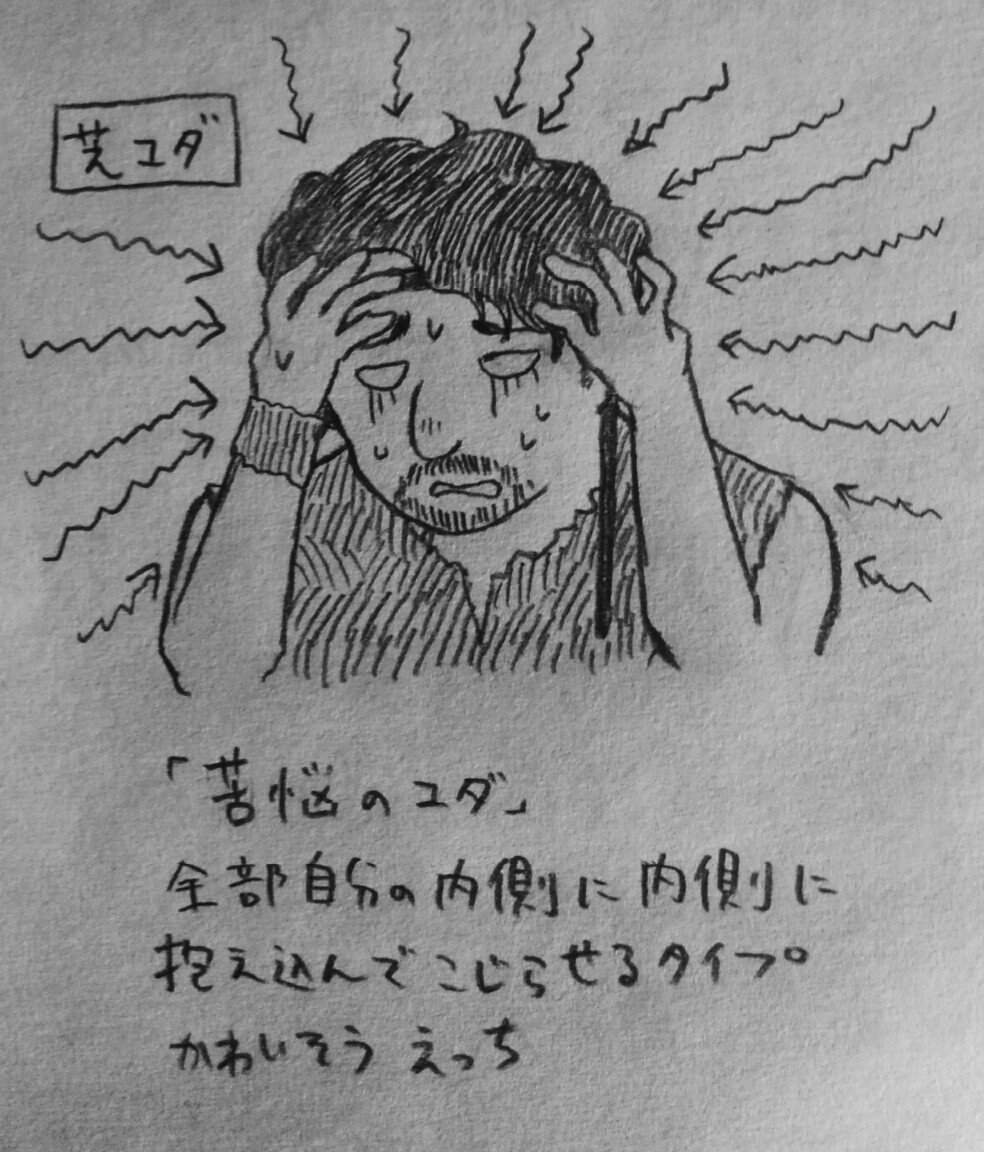 芝ユダ
「苦悩のユダ」
全部自分の内側に内側に
抱え込んでこじらせるタイプ
かわいそう えっち